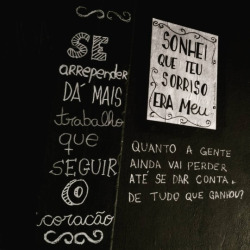 SE
arrepender
DÁ MAIS
trabalho
que
SEGUIR
O
coração
SONHEI
QUE TEU
SORRISO
ERA MEU
QUANTO A GENTE
AINDA VAI PERDER
ATÉ SE DAR CONTA
DE TUDO QUE GANHOU?